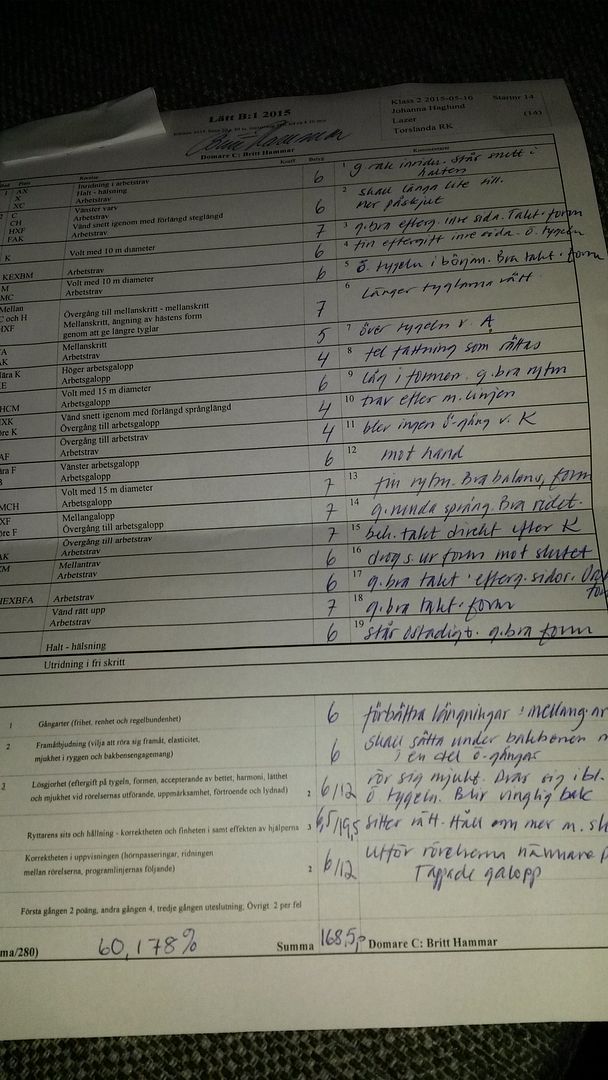 Lätt B:1 2015
Klass 2 2015-05-16 Startnr 14
Johanna Haglund
Lazer (14)
Torslanda RK
Britt Hammar
Domare C: Britt Hammar
Rörelse Betyg Kommentarer
1 AX Inridning i arbetstrav
X Halt - hälsning 6 1 g. rak inridn. Står snett i halten
XC Arbetstrav
2 C Vänster varv 2 skall länga lite till.
CH Arbetstrav 6 mer påskjut
HXF Vänd snett igenom med förlängd steglängd
FAK Arbetstrav 7 3 g. bra efterg. inre sida. Takt. form
K Volt med 10 m diameter 6 4 fin eftergift inre sida. ö. tygeln
KEXBM Arbetstrav
M Volt med 10 m diameter 6 5 Ö. tygeln i början. Bra takt. form
MC Arbetstrav
Mellan C och H Övergång till mellanskritt - mellanskritt 7 6 Länger tyglarna rätt
HXF Mellanskritt, ängning av hästens form
genom att ge längre tyglar
Mellanskritt 5 7 över tygeln v. A
Arbetstrav
Höger arbetsgalopp 4 8 fel fattning som rättas
Arbetsgalopp
Volt med 15 m diameter 6 9 låg i formen. g. bra rytm
HCM Arbetsgalopp
Vänd snett igenom med förlängd språnglängd 4 10 trav efter m. linjen
Övergång till arbetsgalopp
Övergång till arbetstrav 4 11 blev ingen ö-gång v. K
AF Arbetstrav
Vänster arbetsgalopp 6 12 mot hand
Arbetsgalopp
Volt med 15 m diameter 7 13 fin rytm. Bra balans, form
MCH Arbetsgalopp
Mellangalopp 7 14 g. runda språng. Bra ridet.
Övergång till arbetsgalopp
Övergång till arbetstrav 7 15 beh. takt direkt efter K
Arbetstrav
Mellantrav 6 16 drog s. ur form mot slutet
Arbetstrav
HEXBFA Arbetstrav 6 17 g. bra takt. efterg. sidor.
Vänd rätt upp 7 18 g. bra takt. form
Arbetstrav
Halt - hälsning 6 19 står ostadigt. g. bra form
Utridning i fri skritt
1 Gångarter (frihet, renhet och regelbundenhet) 6 förbättra längningar
2 Framåtbjudning (vilja att röra sig framåt, elasticitet, skall sätta under bakbenen
mjukhet i ryggen och bakbensengagemang) 6 i en del ö-gångar
3 Lösgjorhet (eftergift på tygeln, formen, accepterande av bettet, harmoni, lätthet rör sig mjukt. Drar sig ibl.
och mjukhet vid rörelsernas utförande, uppmärksamhet, förtroende och lydnad) 2 6/12 ö tygeln. Blir vinglig bak
Ryttarens sits och hållning - korrektheten och finheten i samt effekten av hjälperna 3 6,5/19,5 Sitter rätt. Håll om mer m.
Korrektheten i uppvisningen (hörnpasseringar, ridningen Utför rörelserna närmare
mellan rörelserna, programlinjernas följande) 2 6/12 Tappade galopp
Första gången 2 poäng, andra gången 4, tredje gången uteslutning, Övrigt 2 per fel
ma/280) 60,178% Summa 168,5 p Domare C: Britt Hammar